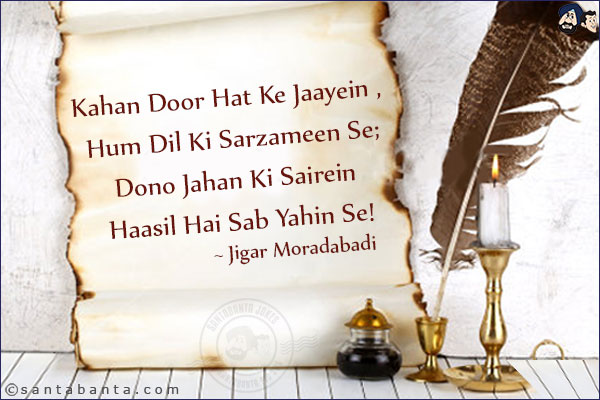 Kahan Door Hat Ke Jaayein ,
Hum Dil Ki Sarzameen Se;
Dono Jahan Ki Sairein
Haasil Hai Sab Yahin Se!
~ Jigar Moradabadi
SANTABANTA JOKES
©santabanta.com